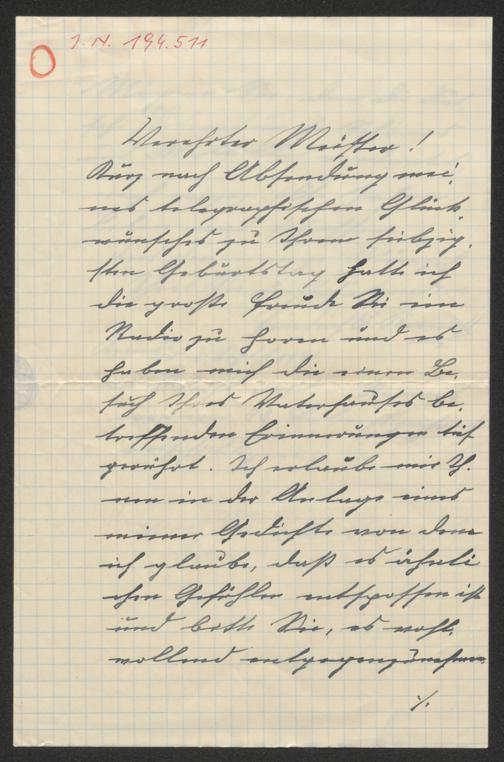 J. N. 194.511
Verehrter Meister!
Kurz nach Absendung mei-
nes telegraphischen Glück-
wunsches zu Ihrem siebzig-
sten Geburtstag hatte ich
die große Freude Sie im
Radio zu hören und es
haben mich die einen Be-
such Ihres Vaterhauses be-
treffenden Erinnerungen tief
gerührt. Ich erlaube mir Ih-
nen in der Anlage eines
meiner Gedichte von dem
ich glaube, daß es ähnli
chen Gefühlen entsprossen ist
und bitte Sie, es wohl-
wollend entgegenzunehmen.
./.